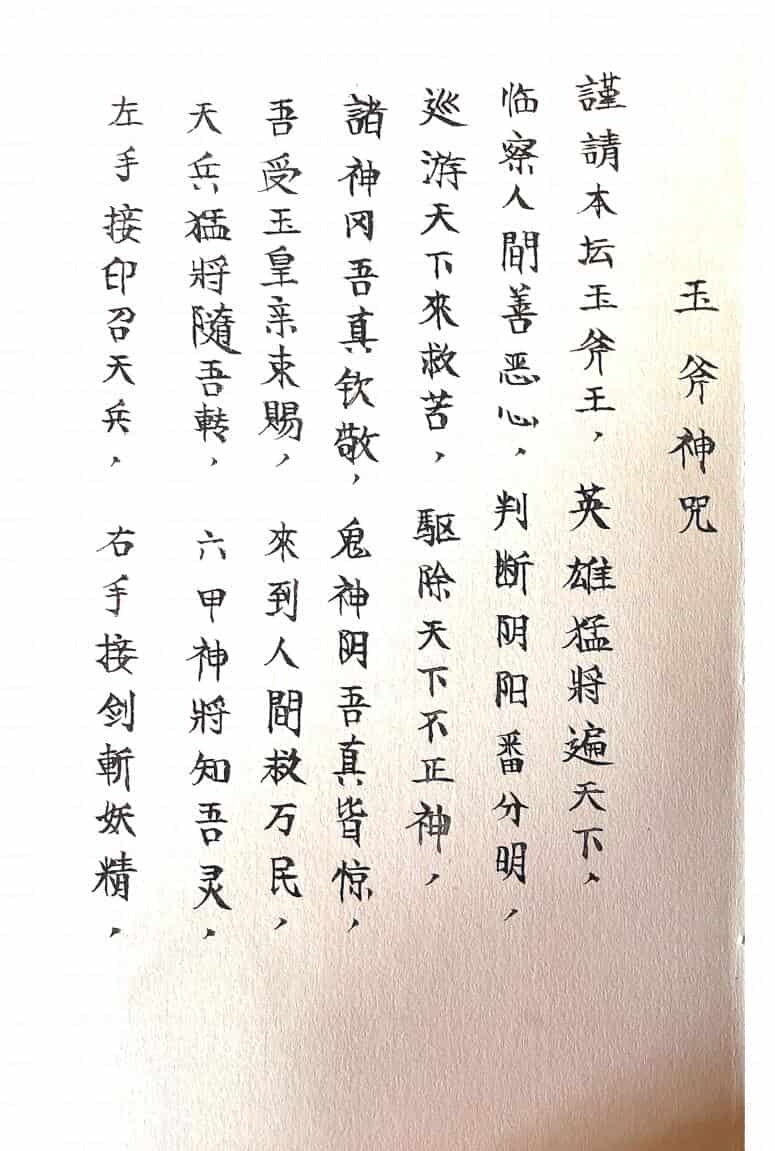 玉斧神咒
謹請本坛玉斧王，英雄猛將遍天下、
临察人間善恶心、判断阴阳番分明，
巡游天下來救苦，駆除天下不正神，
諸神冈吾真钦敬，鬼神阴吾真皆惊，
吾受玉皇亲束賜，來到人間救万民，
天兵猛將隨吾転，六甲神將知吾灵，
左手接印召天兵，右手接剑斬妖精，